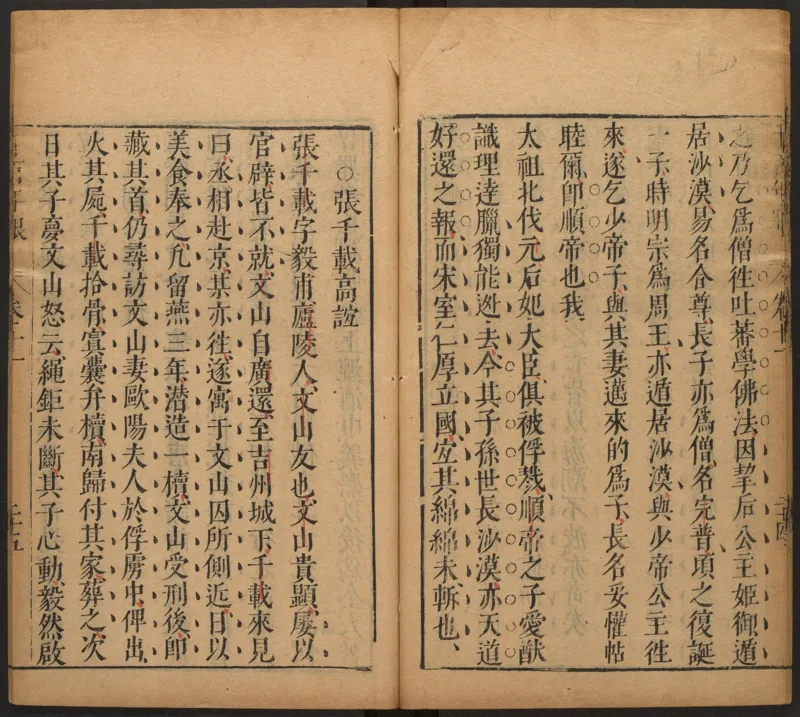 之乃乞爲僧徃吐蕃學佛法因挈后公主姬御遁
居沙漠易名合尊長子亦爲僧名完普頃之復誕
一子時明宗爲周王亦遁居沙漠與少帝公主徃
來遂乞少帝子與其妻邁來的爲子長名妥懽帖
睦爾卽順帝也我
太祖北伐元后妃大臣俱被俘戮順帝之子愛猷
識理達臘獨能迯去今其子孫世長沙漠亦天道
好還之報而宋室仁厚立國宜其綿綿未斬也
卷十一
二十四
○張千載高誼
張千載字毅甫廬陵人文山友也文山貴顯屢以
官辟皆不就文山自廣還至吉州城下千載來見
曰丞相赴京某亦徃遂寓于文山囚所側近日以
美食奉之凢留燕三年潛造一櫝文山受刑後卽
藏其首仍尋訪文山妻歐陽夫人於俘虜中俾出
火其屍千載拾骨寘囊弁櫝南歸付其家葬之次
日其子夢文山怒云繩鉅未斷其子心動毅然啟
卷十一
二十五